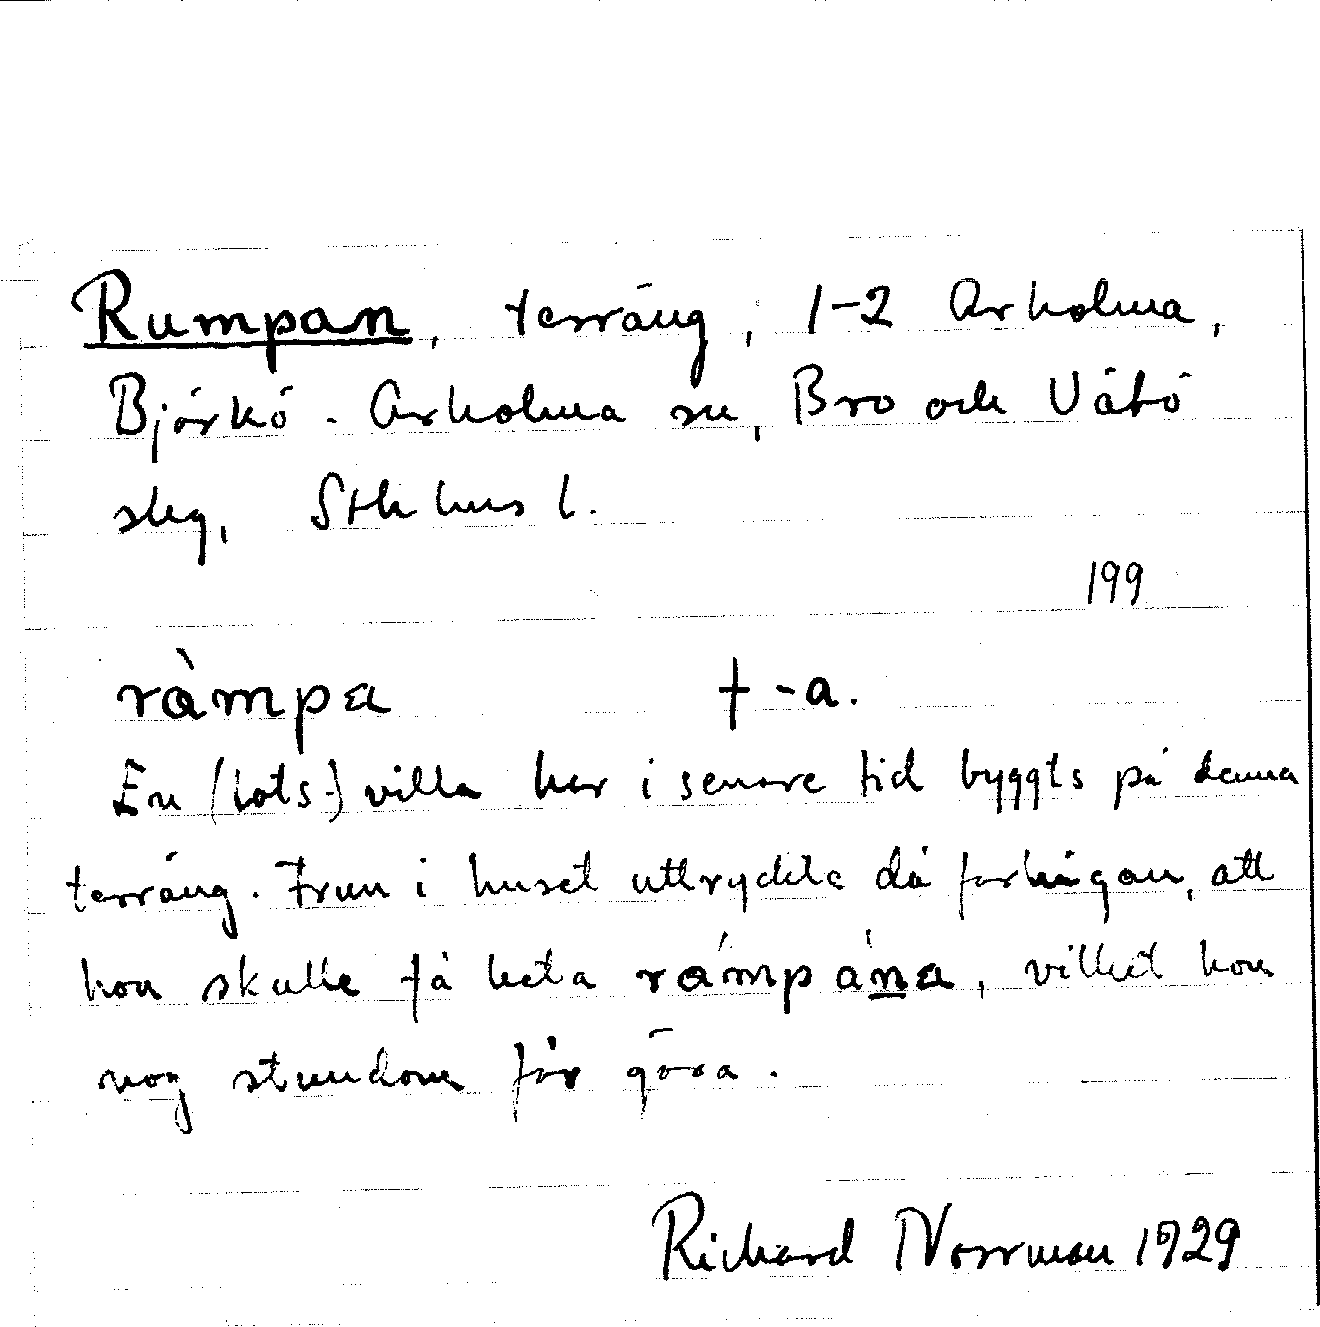 Rumpan, terräng, 1-2 Arholma,
Björkö-Arholma sn, Bro och Vätö
slg, Sthlms l.
199
ràmpa f -a.
En (lots-)villa har i senare tid byggts på denna
terräng. Frun i huset uttryckte då farhågan, att
hon skulle få heta rámpána, vilket hon
nog stundom får göra.
Richard Norrman 1929